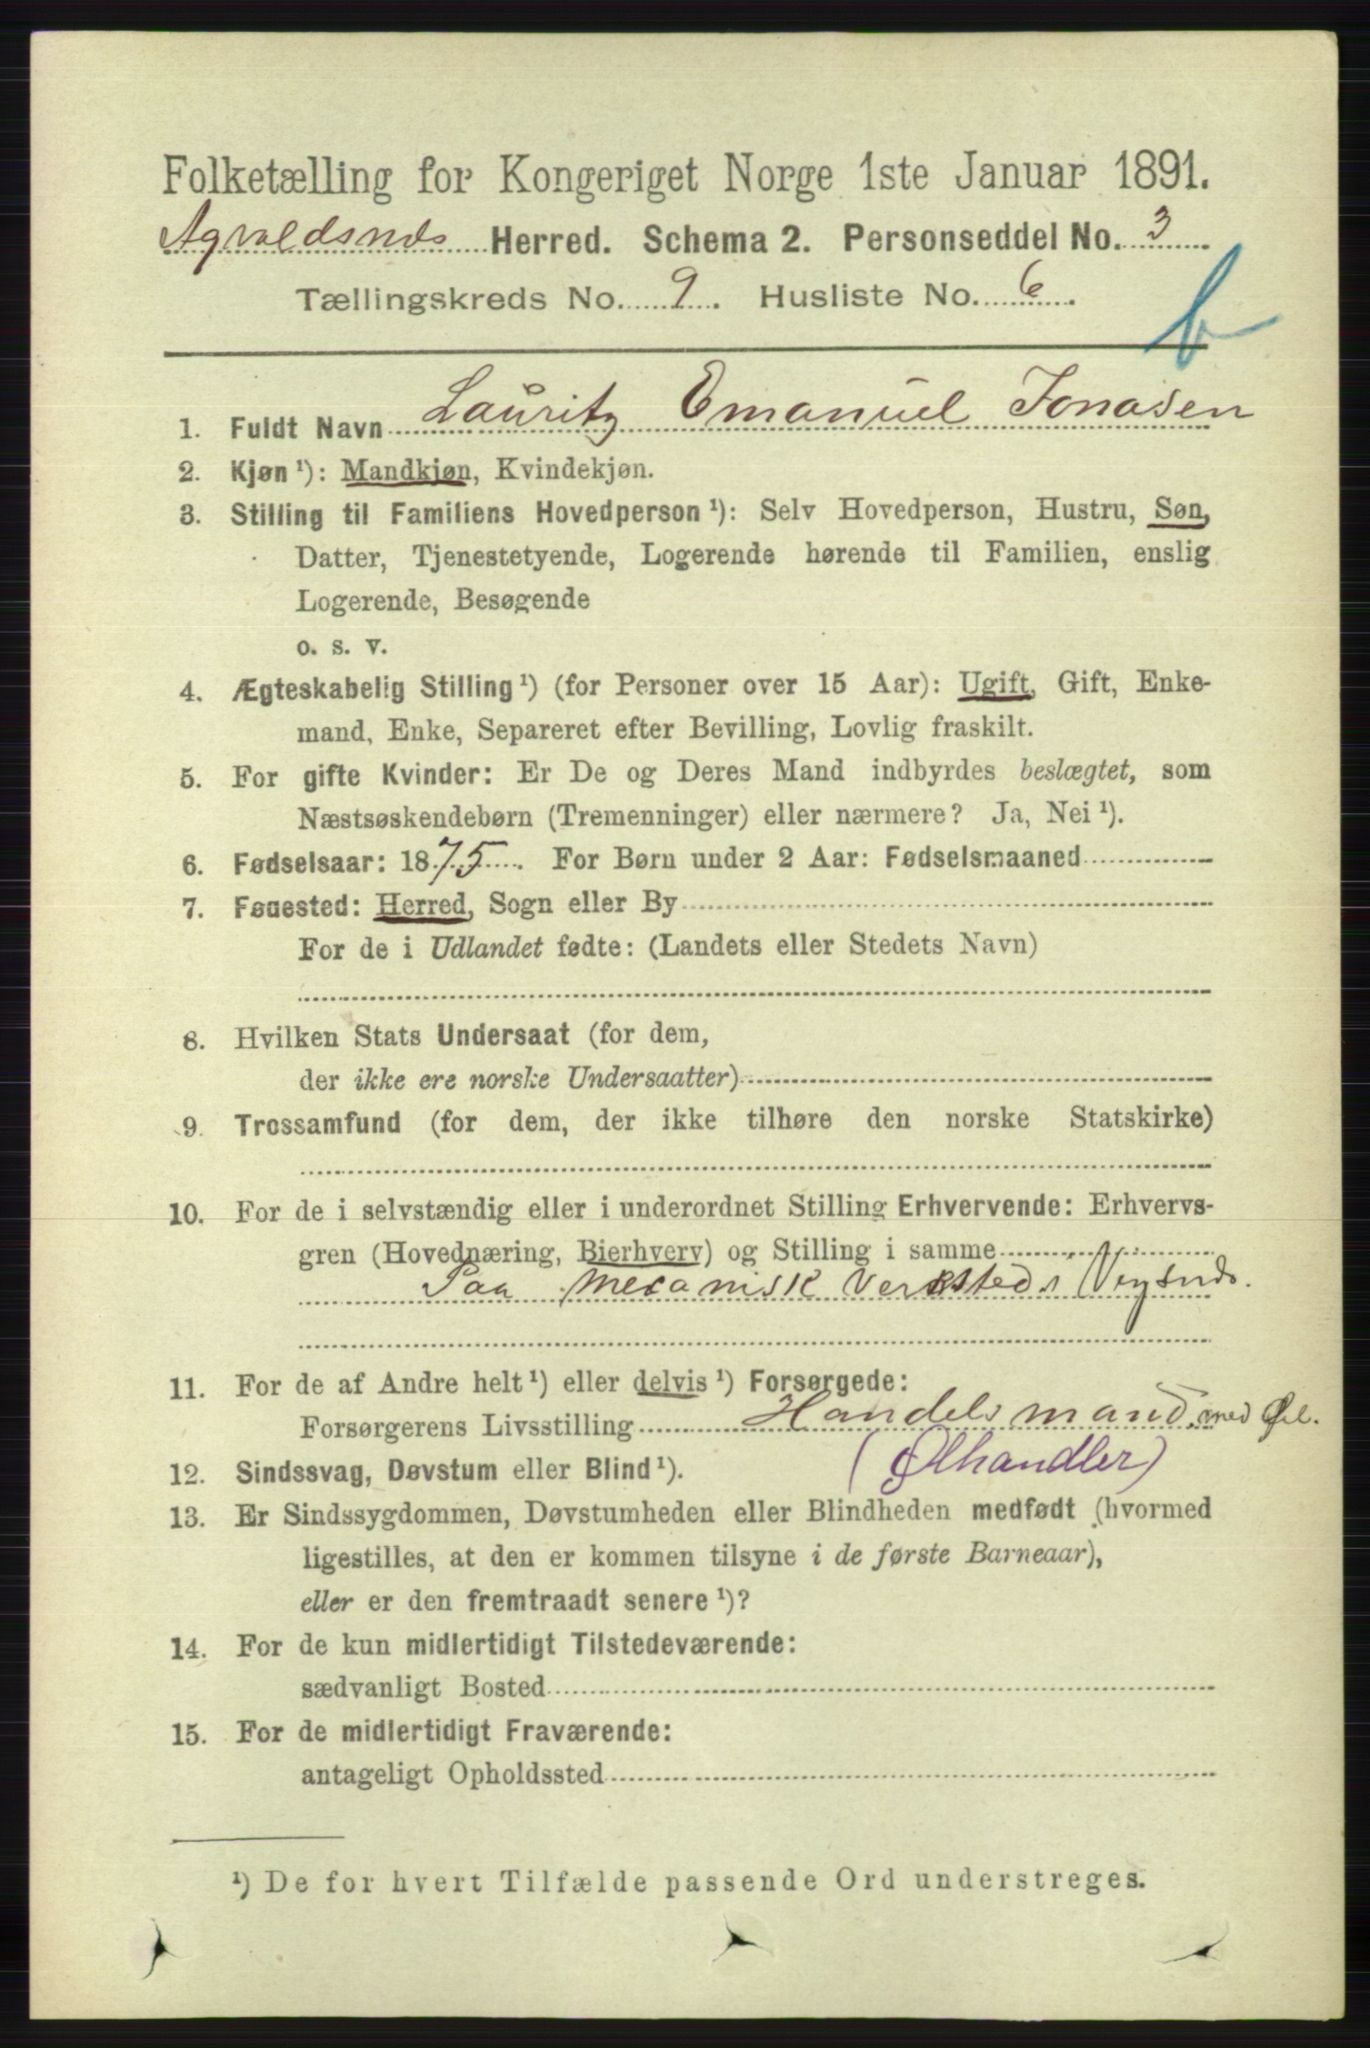 Folketælling for Kongeriget Norge 1ste Januar 1891.
Agvaldsnes Herred. Schema 2. Personseddel No. 3
Tællingskreds No. 9. Husliste No. 6.
b
1. Fuldt Navn Lauritz Emanuel Jonasen
2. Kjøn¹): Mandkjøn, Kvindekjøn.
3. Stilling til Familiens Hovedperson¹): Selv Hovedperson, Hustru, Søn,
Datter, Tjenestetyende, Logerende hørende til Familien, enslig
Logerende, Besøgende
o. s. v.
4. Ægteskabelig Stilling¹) (for Personer over 15 Aar): Ugift, Gift, Enke-
mand, Enke, Separeret efter Bevilling, Lovlig fraskilt.
5. For gifte Kvinder: Er De og Deres Mand indbyrdes beslægtet, som
Næstsøskendebørn (Tremenninger) eller nærmere? Ja, Nei¹).
6. Fødselsaar: 1875. For Børn under 2 Aar: Fødselsmaaned
7. Føuested: Herred, Sogn eller By
For de i Udlandet fødte: (Landets eller Stedets Navn)
8. Hvilken Stats Undersaat (for dem,
der ikke ere norske Undersaatter)
9. Trossamfund (for dem, der ikke tilhøre den norske Statskirke)
10. For de i selvstændig eller i underordnet Stilling Erhvervende: Erhvervs-
gren (Hovednæring, Bierhverv) og Stilling i samme
Paa mecanisk Verksted i Vigsnes.
11. For de af Andre helt¹) eller delvis¹) Forsørgede:
Forsørgerens Livsstilling Handelsmand. med Øl.
(Ølhandler)
12. Sindssvag, Døvstum eller Blind¹).
13. Er Sindssygdommen, Døvstumheden eller Blindheden medfødt (hvormed
ligestilles, at den er kommen tilsyne i de første Barneaar),
eller er den fremtraadt senere¹)?
14. For de kun midlertidigt Tilstedeværende:
sædvanligt Bosted
15. For de midlertidigt Fraværende:
antageligt Opholdssted
¹) De for hvert Tilfælde passende Ord understreges.